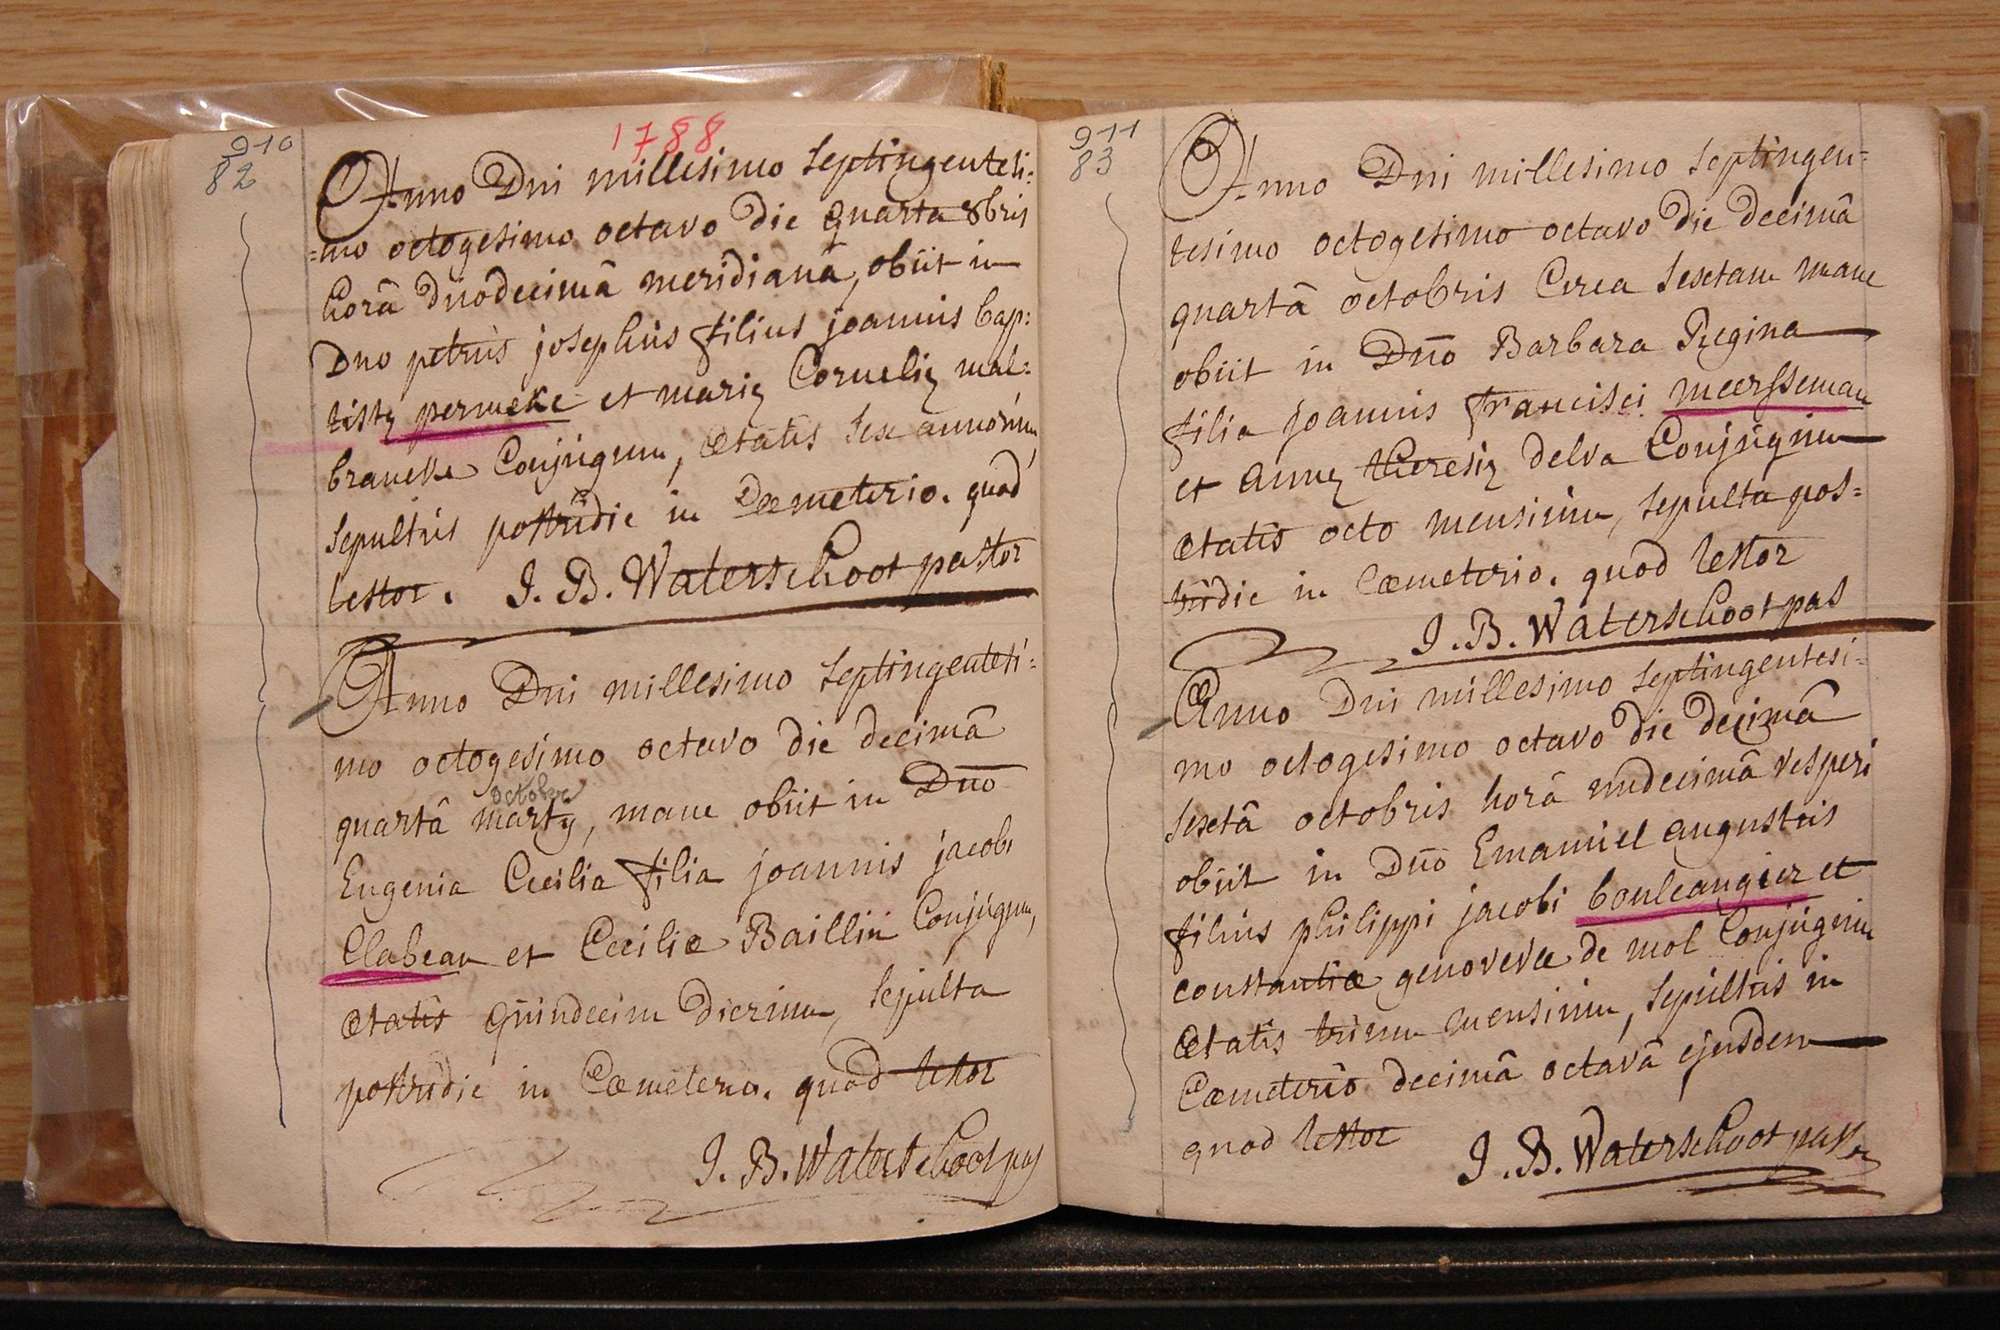 910
82
1788
Anno Dni millesimo septingentesi=
=mo octogesimo octavo die quarta 8bris
horâ duodecimâ meridianâ, obiit in
Dno petrus josephus filius joannis bap=
tistę permeke et marię Cornelię mal=
brancke Conjugum, ætatis sex annorum,
sepultus postridie in Cœmeterio. quod
testor. J. B. Waterschoot pastor
Anno Dni millesimo septingentesi=
mo octogesimo octavo die decimâ
octobre
quartâ marty, mane obiit in Dno
Eugenia Cecilia filia joannis jacobi
Clabeau et Ceciliæ Bailliu Conjugum,
ætatis quindecim dierum, sepulta
postridie in Cœmeterio. quod testor
J. B. Waterschoot pas
911
83
Anno Dni millesimo septingen=
tesimo octogesimo octavo die decimâ
quartâ octobris Circa sextam mane
obiit in Dno Barbara Regina
filia joannis francisci meersseman
et annę theresię delva Conjugum
ætatis octo mensium, sepulta pos=
tridie in Cœmeterio. quod testor
J. B. Waterschoot pas
Anno Dni millesimo septingentesi=
mo octogesimo octavo die decimâ
sextâ octobris horâ undecimâ vesperi
obiit in Dno Emanuel augustus
filius philippi jacobi bouleangier et
constantiæ genovevæ de mol Conjugum
ætatis trium mensium, sepultus in
Cœmeterio decimâ octavâ ejusdem
quod testor J. B. Waterschoot pastor